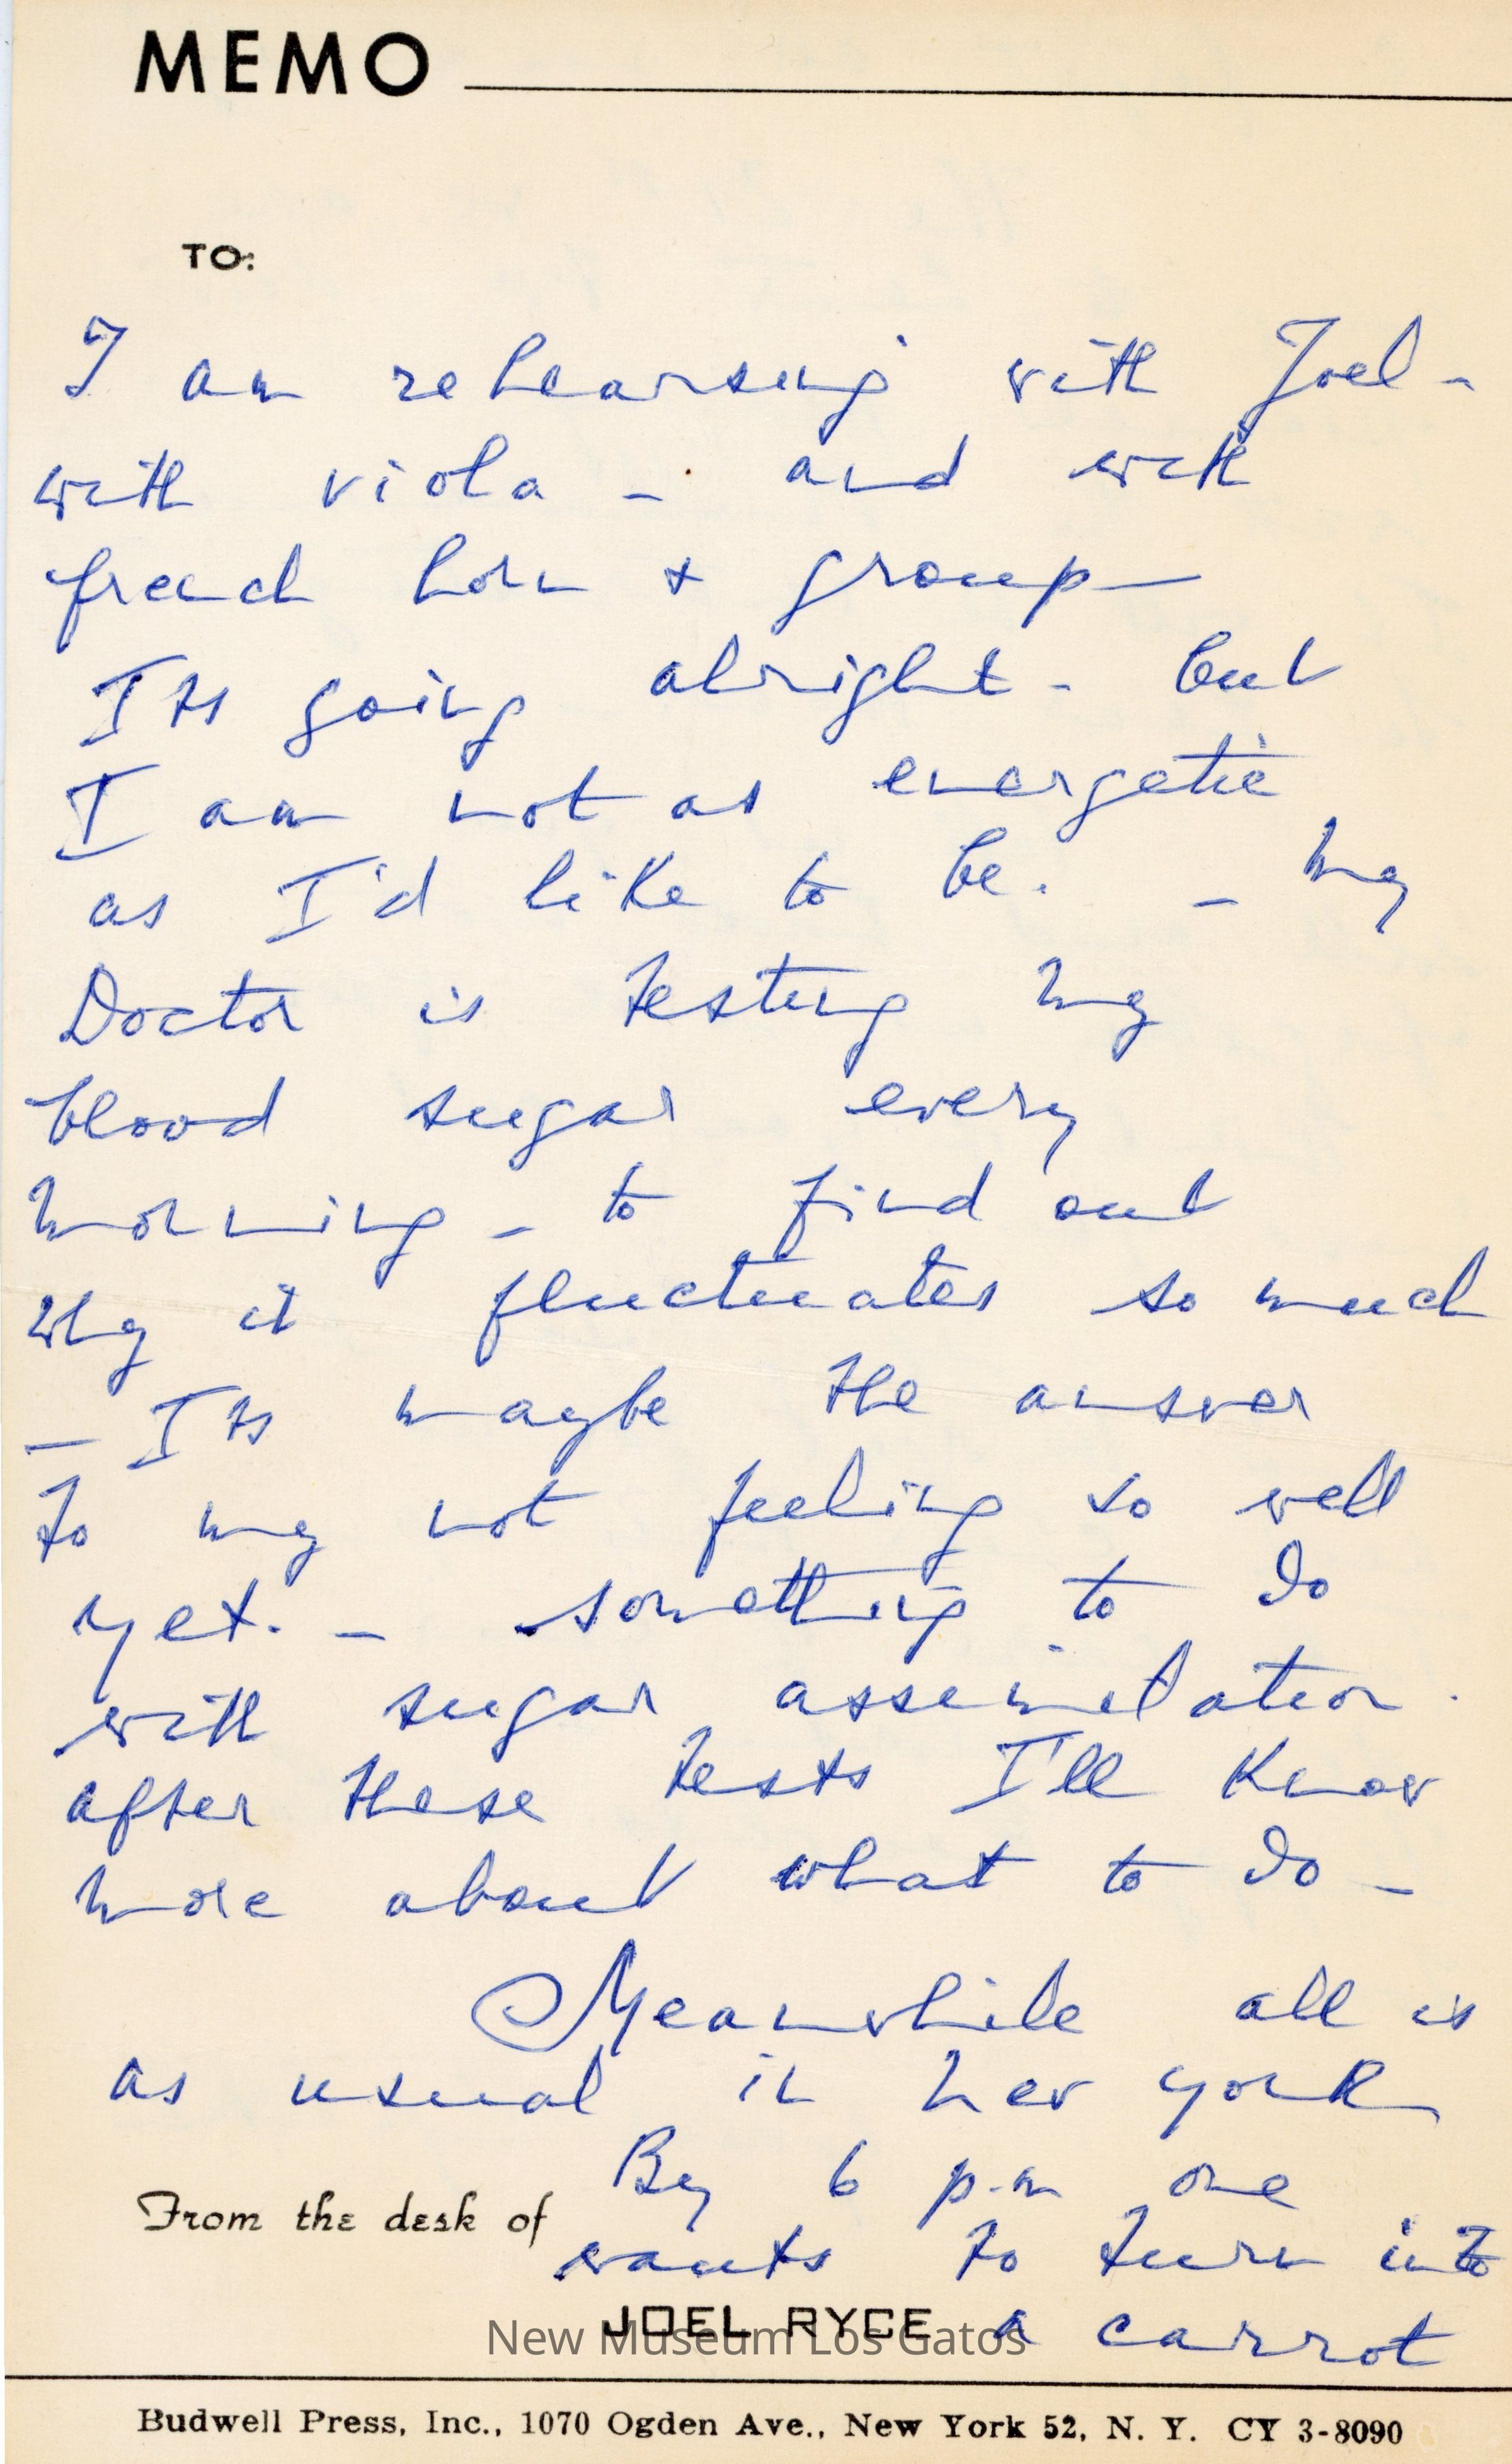 MEMO
TO:
I am rehearsing with Joel -
with viola - and with
french horn + group -
Its going alright - but
I am not as energetic
as I'd like to be. - my
Doctor is testing my
blood sugar every
morning - to find out
why it fluctuates so much
- Its maybe the answer
to my not feeling so well
yet. - something to do
with sugar assimilation.
after these tests I'll know
more about what to do -
Meanwhile all is
as usual in new york
By 6 p.m one
From the desk of wants to turn into
JOEL RYCE a carrot
New Museum Los Gatos
Budwell Press, Inc., 1070 Ogden Ave., New York 52, N. Y. CY 3-8090